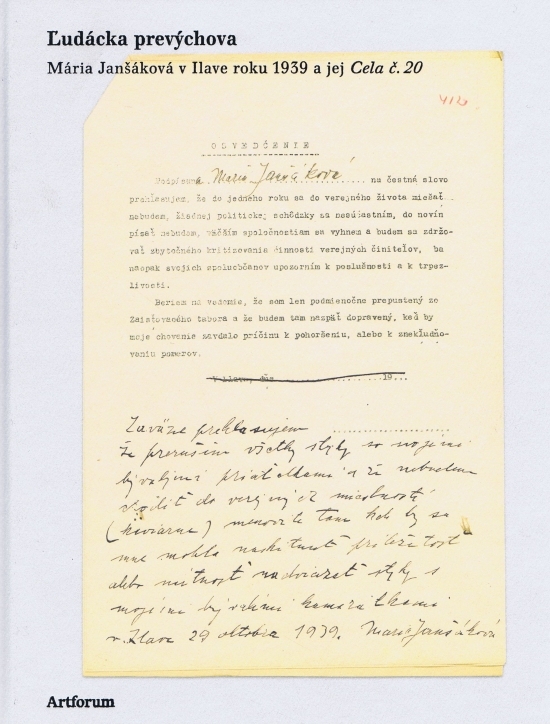 Ľudácka prevýchova
Mária Janšáková v Ilave roku 1939 a jej Cela č. 20
O S V E D Č E N I E
Podpísaná Maria Janšáková na čestné slovo
prehlasujem, že do jedného roku sa do verejného života miešať
nebudem, žiadnej politickej schôdzky sa nesúčastním, do novín
písať nebudem, väčším spoločnostiam sa vyhnem a budem sa zdržo-
vať zbytočného kritizovania činnosti verejných činiteľov, ba
naopak svojich spoluobčanov upozorním k poslušnosti a k trpez-
livosti.
Beriem na vedomie, že som len podmienočne prepustený zo
Zaisťovacieho tábora a že budem tam nazpäť dopravený, keď by
moje chovanie zavdalo príčinu k pohoršeniu, alebo k znekľudňo-
vaniu pomerov.
V Ilave, dňa ............ 19...
Zaväzne prehlasujem
že preruším všetky styky so svojimi
bývalými priateľkami a že nebudem
chodiť do verejných miestností
(kaviarne) menovite tam keď by sa
mne mohla naskytnúť príležitosť
alebo nútnosť nadviazať styky s
mojimi bývalými kamarátkami
v Ilave 29 októbra 1939. Maria Janšáková
Artforum